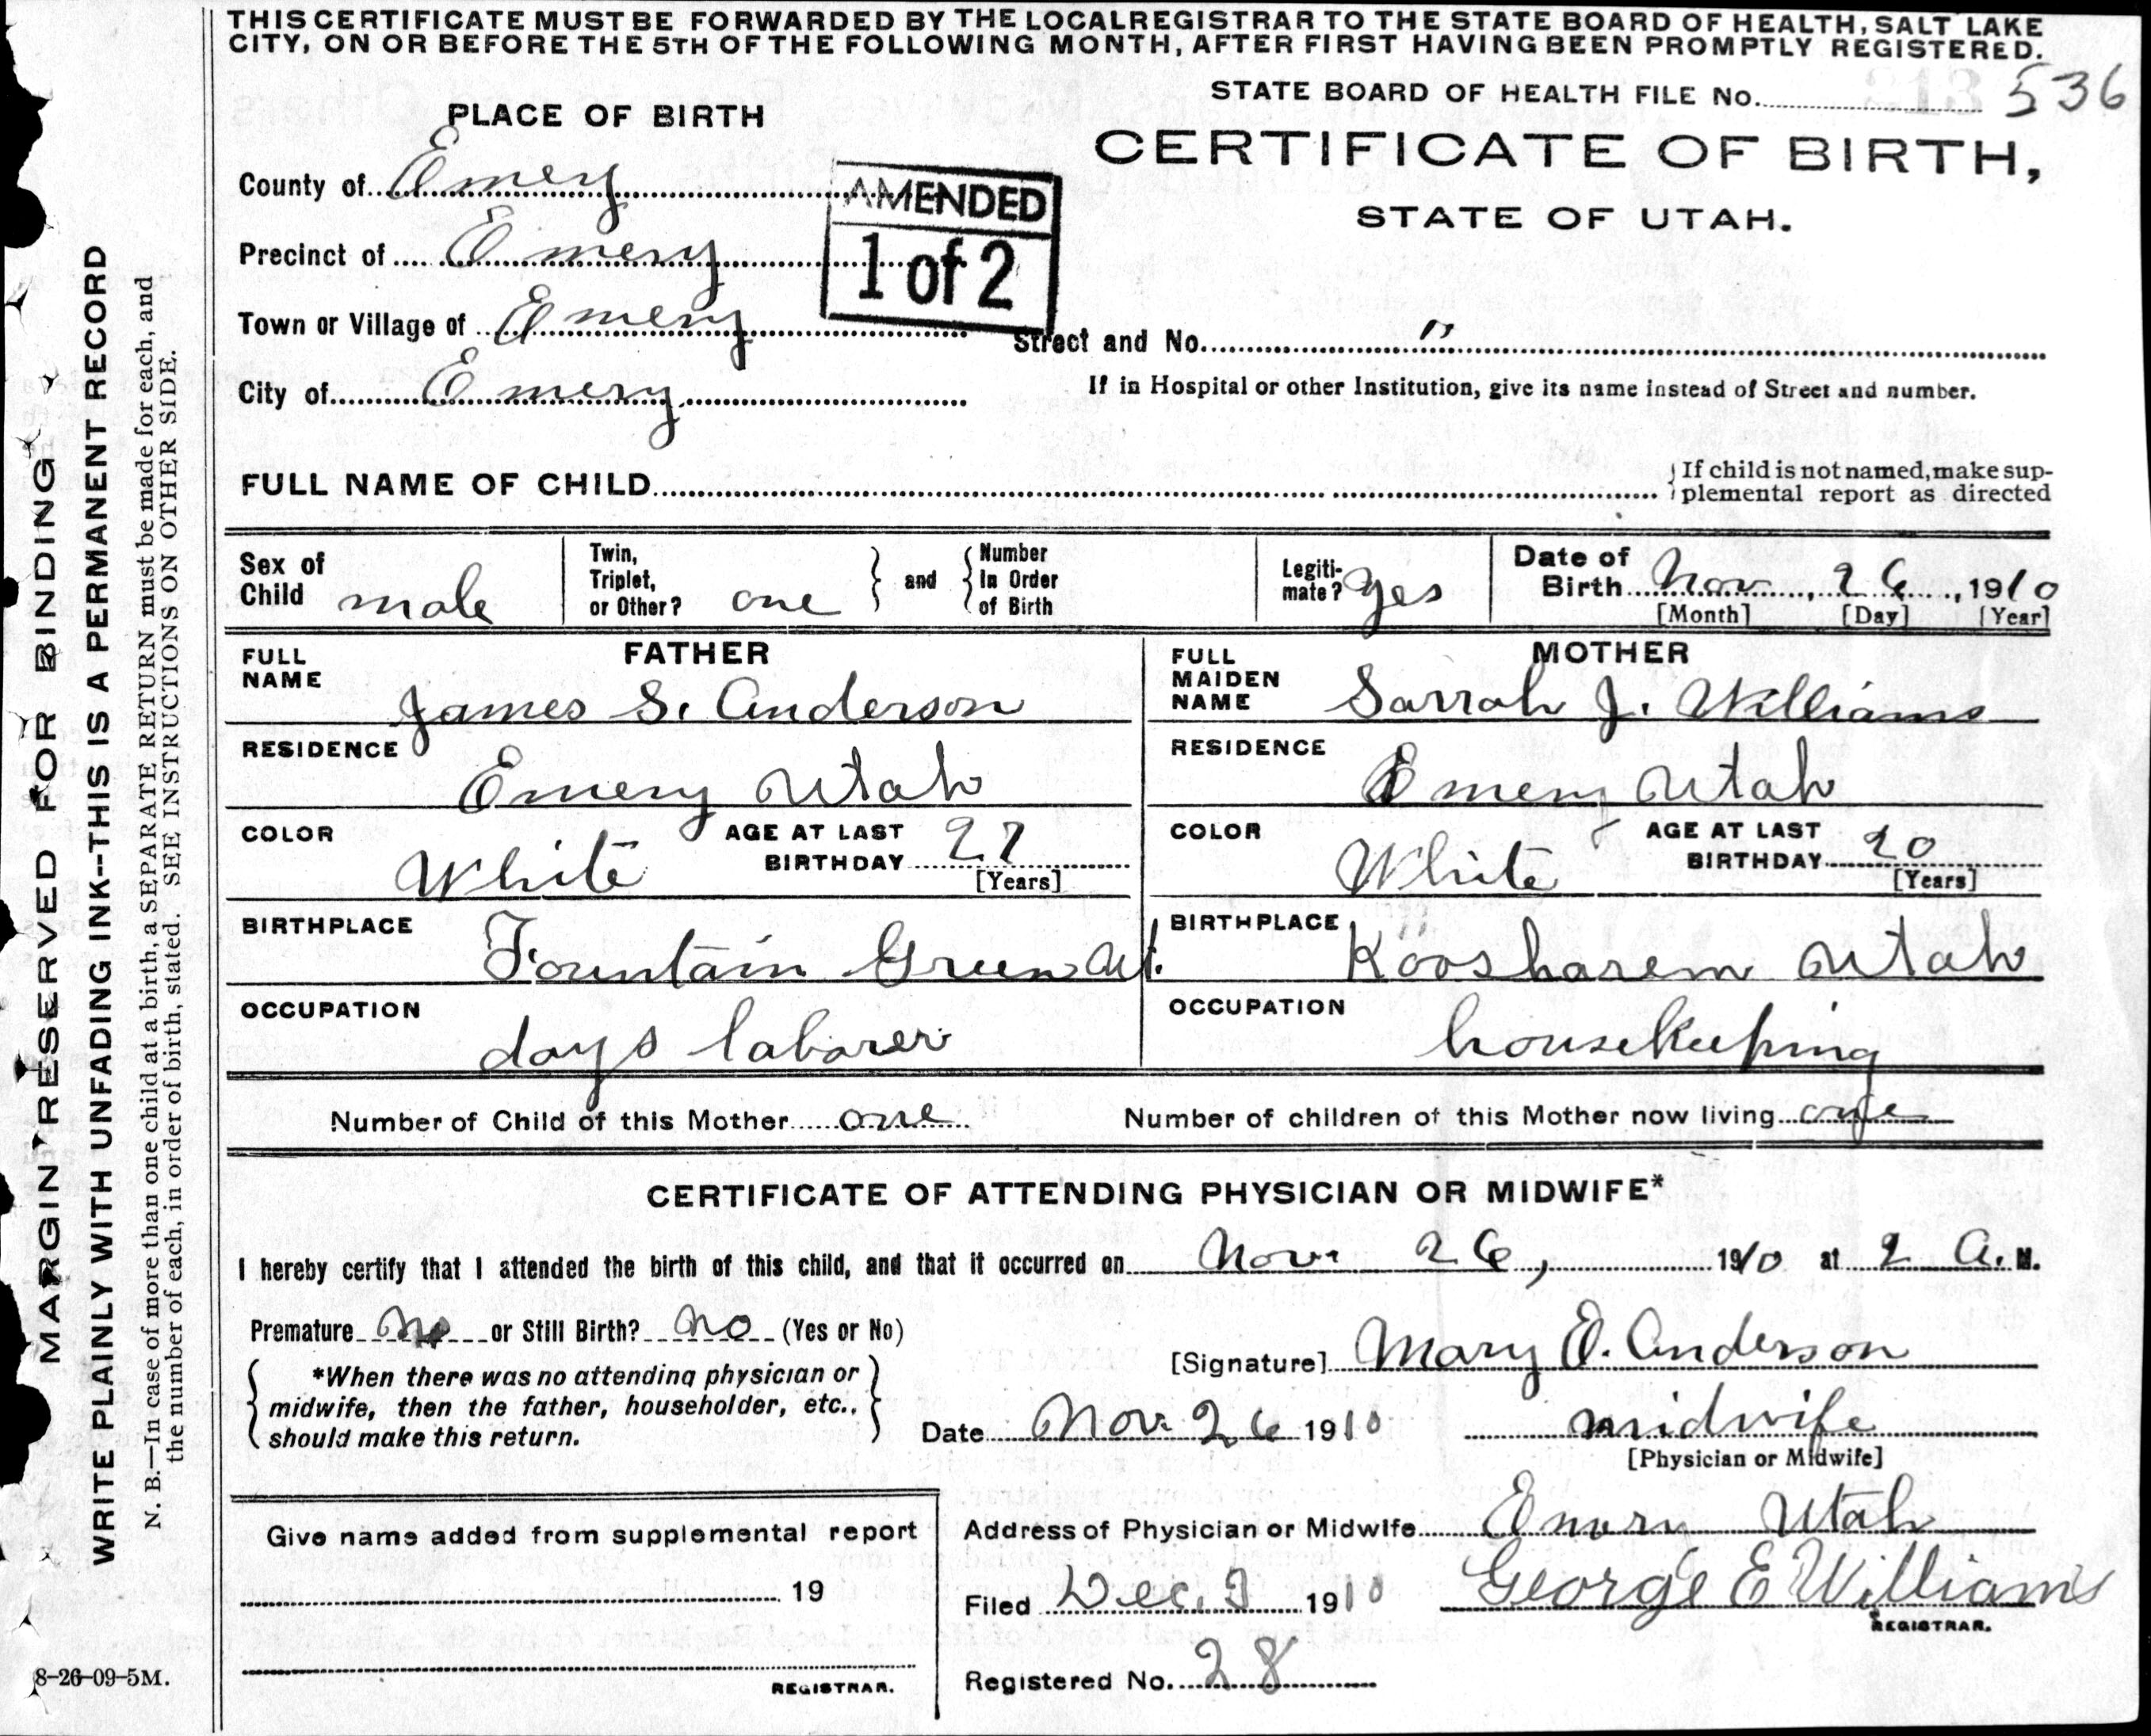 THIS CERTIFICATE MUST BE FORWARDED BY THE LOCAL REGISTRAR TO THE STATE BOARD OF HEALTH, SALT LAKE
CITY, ON OR BEFORE THE 5TH OF THE FOLLOWING MONTH, AFTER FIRST HAVING BEEN PROMPTLY REGISTERED.
STATE BOARD OF HEALTH FILE No. 536
PLACE OF BIRTH
CERTIFICATE OF BIRTH,
STATE OF UTAH.
County of Emery
AMENDED
1 of 2
Precinct of Emery
Town or Village of Emery
Street and No. "
City of Emery
If in Hospital or other Institution, give its name instead of Street and number.
FULL NAME OF CHILD
If child is not named, make sup-
plemental report as directed
Sex of
Child male
Twin,
Triplet,
or Other? one
and
Number
In Order
of Birth
Legiti-
mate? yes
Date of
Birth Nov. 26, 1910
[Month] [Day] [Year]
FATHER
FULL
NAME
James S. Anderson
RESIDENCE
Emery Utah
COLOR
White
AGE AT LAST
BIRTHDAY 27
[Years]
BIRTHPLACE
Fountain Green Ut.
OCCUPATION
days laborer
MOTHER
FULL
MAIDEN
NAME
Sarrah J. Williams
RESIDENCE
Emery Utah
COLOR
White
AGE AT LAST
BIRTHDAY 20
[Years]
BIRTHPLACE
Koosharem Utah
OCCUPATION
housekeeping
Number of Child of this Mother one
Number of children of this Mother now living one
CERTIFICATE OF ATTENDING PHYSICIAN OR MIDWIFE*
I hereby certify that I attended the birth of this child, and that it occurred on Nov. 26, 1910 at 2 A. M.
Premature No or Still Birth? No (Yes or No)
*When there was no attending physician or
midwife, then the father, householder, etc.,
should make this return.
[Signature] Mary E. Anderson
Date Nov. 26 1910
midwife
[Physician or Midwife]
Give name added from supplemental report
19
REGISTRAR.
Address of Physician or Midwife Emery Utah
Filed Dec. 3 1910
George E Williams
REGISTRAR.
Registered No. 28
8-26-09-5M.
MARGIN RESERVED FOR BINDING
WRITE PLAINLY WITH UNFADING INK--THIS IS A PERMANENT RECORD
N. B.—In case of more than one child at a birth, a SEPARATE RETURN must be made for each, and
the number of each, in order of birth, stated. SEE INSTRUCTIONS ON OTHER SIDE.